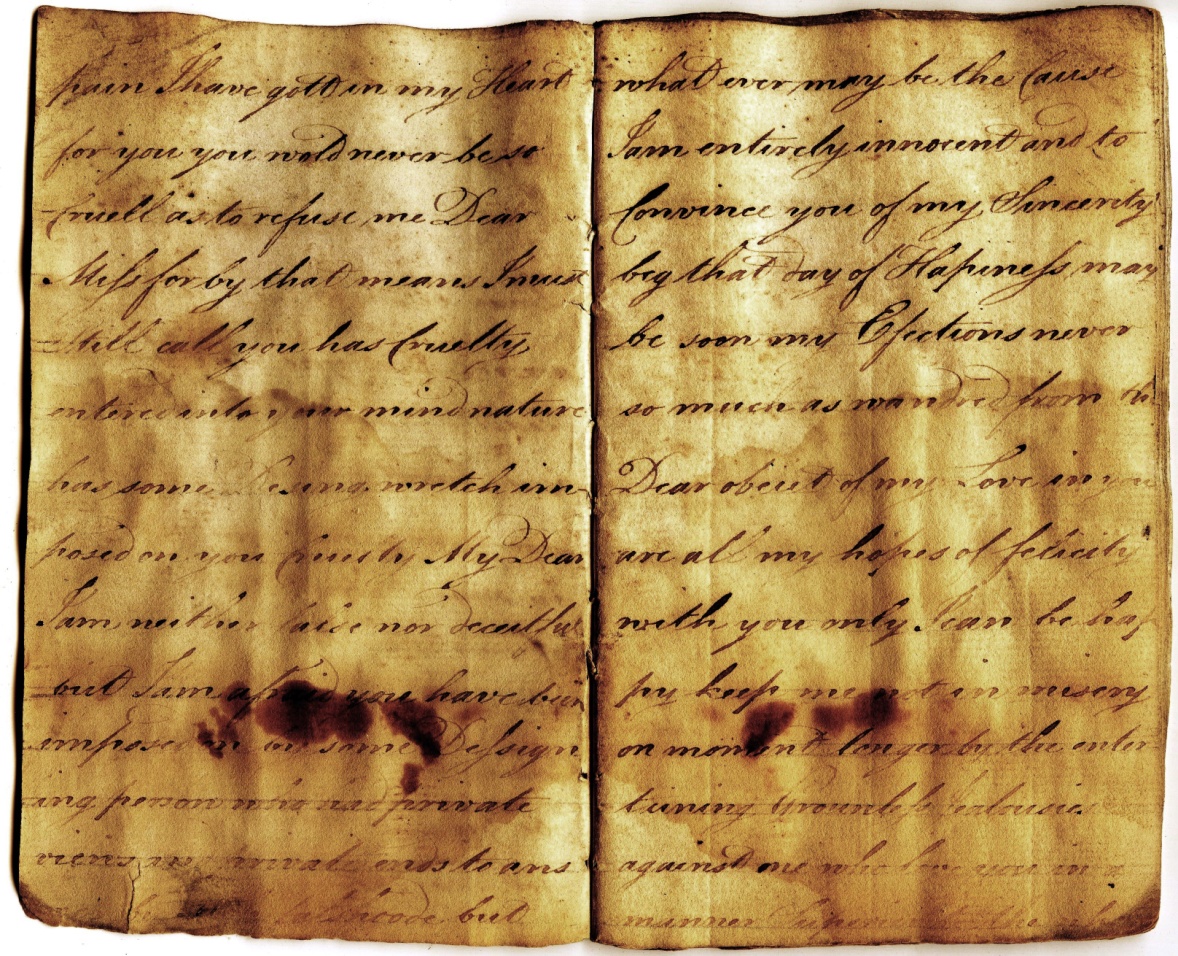 pain I have gott in my Heart
for you you wold never be so
Cruell as to refuse me Dear
Miſs for by that means I must
still call you has Cruelty
entered into your mind nature
has some wretch im
posed on you cruelly My Dear
I am neither false nor deceitful
but I am afraid you have bein
imposed on by some Deſsign
ing person who had private
views and private ends to ans
falshoode but
what ever may be the Cause
I am entirely innocent and to
Convince you of my Sincerity
beg that day of Hapineſs may
be soon my Efections never
so much as wandred from the
Dear obiect of my Love in you
are all my hopes of felicity
with you only I can be hap
py keep me not in misery
on moment longer by the enter
taining grounleſs Jealousies
against one who you in a
manner the